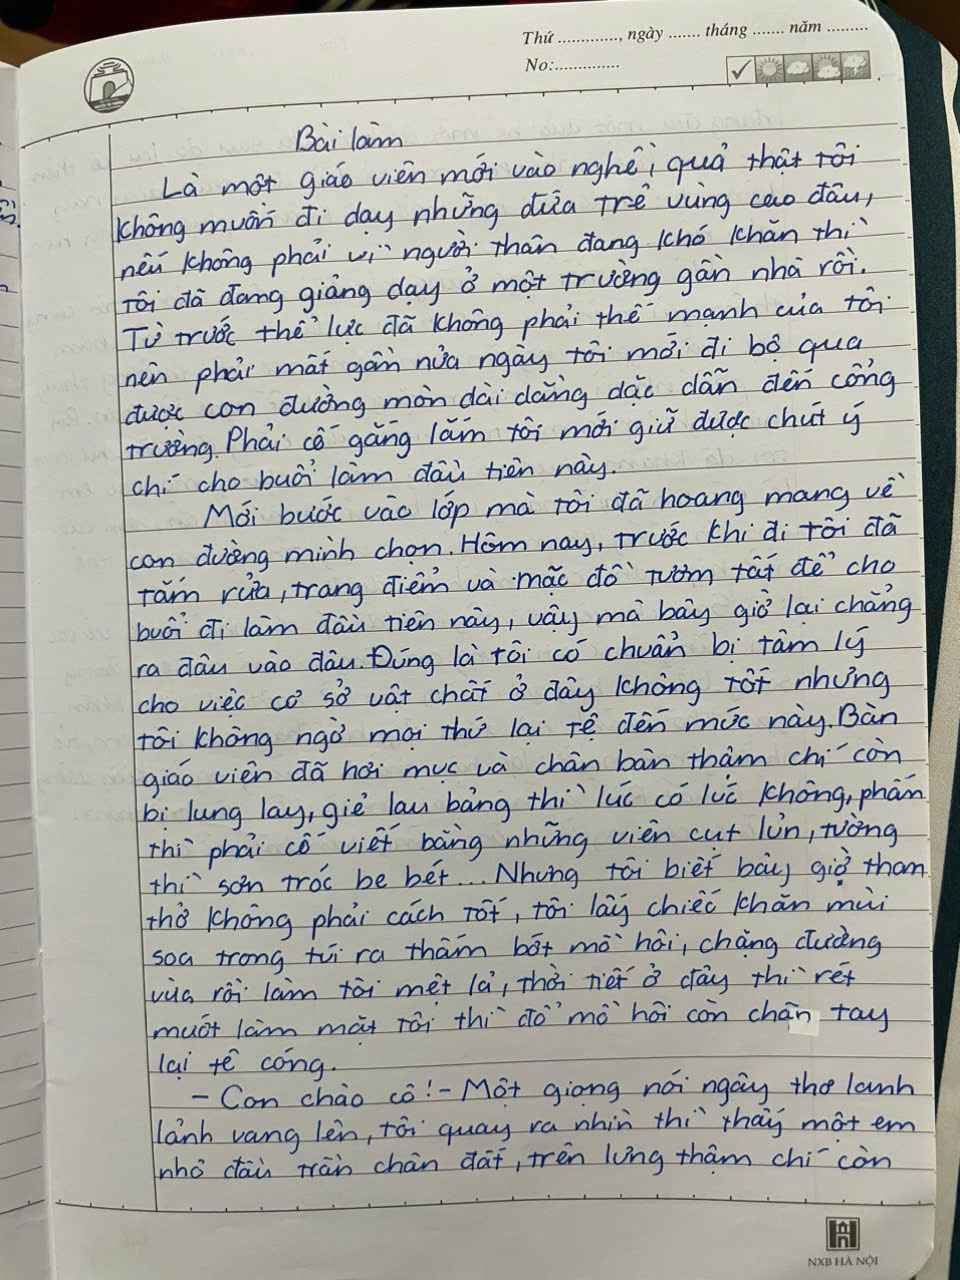 Thứ ............., ngày ....... tháng ....... năm .........
No:..............
Bài làm
Là một giáo viên mới vào nghề, quả thật tôi
không muốn đi dạy những đứa trẻ vùng cao đâu,
nếu không phải vì người thân đang khó khăn thì
tôi đã đang giảng dạy ở một trường gần nhà rồi.
Từ trước thể lực đã không phải thế mạnh của tôi
nên phải mất gần nửa ngày tôi mới đi bộ qua
được con đường mòn dài dằng dặc dẫn đến cổng
trường. Phải cố gắng lắm tôi mới giữ được chút ý
chí cho buổi làm đầu tiên này.
Mới bước vào lớp mà tôi đã hoang mang về
con đường mình chọn. Hôm nay, trước khi đi tôi đã
tắm rửa, trang điểm và mặc đồ tươm tất để cho
buổi đi làm đầu tiên này, vậy mà bây giờ lại chẳng
ra đâu vào đâu. Đúng là tôi có chuẩn bị tâm lý
cho việc cơ sở vật chất ở đây không tốt nhưng
tôi không ngờ mọi thứ lại tệ đến mức này. Bàn
giáo viên đã hơi mục và chân bàn thậm chí còn
bị lung lay, giẻ lau bảng thì lúc có lúc không, phấn
thì phải cố viết bằng những viên cụt lủn, tường
thì sơn tróc be bét... Nhưng tôi biết bây giờ than
thở không phải cách tốt, tôi lấy chiếc khăn mùi
soa trong túi ra thấm bớt mồ hôi, chặng đường
vừa rồi làm tôi mệt lả, thời tiết ở đây thì rét
muốt làm mặt tôi thì đổ mồ hôi còn chân tay
lại tê cóng.
- Con chào cô! - Một giọng nói ngây thơ lanh
lảnh vang lên, tôi quay ra nhìn thì thấy một em
nhỏ đầu trần chân đất, trên lưng thậm chí còn
NXB HÀ NỘI